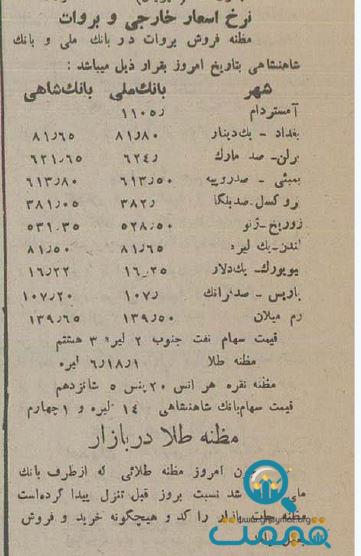 نرخ اسعار خارجی و بروات
مظنه فروش بروات در بانك ملی و بانك
شاهنشاهی بتاریخ امروز بقرار ذیل میباشد :
شهر بانك‌ملی بانك‌شاهی
آمستردام ۱۱۰۵ر
بغداد - یك‌دینار ۸۱ر۸۰ ۸۱ر۶۵
برلن - صد مارك ۶۲۴ر ۶۲۱ر۶۵
بمبئی - صدروپیه ۶۱۳ر۵۰ ۶۱۳ر۸۰
بروكسل - صدبلگا ۳۸۲ر ۳۸۱ر۰۵
زوریخ - ژنو ۵۲۸ر۵۰ ۵۳۱ر۳۵
لندن - یك لیره ۸۱ر۶۵ ۸۱ر۵۰
نیویورك - یك‌دلار ۱۶ر۲۵ ۱۶ر۲۲
پاریس - صدفرانك ۱۰۷ر ۱۰۷ر۲۰
رم میلان ۱۳۹ر۵۰ ۱۳۹ر۶۵
قیمت سهام نفت جنوب ۲ لیره ۳ هشتم
مظنه طلا ۶ر۱۸ر۱ لیره
مظنه نقره هر انس ۲۰ پنس ۵ شانزدهم
قیمت سهام‌بانك شاهنشاهی ۱۴ لیره و ۱ چهارم
مظنه طلا در بازار
امروز مظنه طلائی كه ازطرف بانك
شد نسبت بروز قبل تنزل پیدا كرده‌است
مظنه بازار را كد و هیچگونه خرید و فروش